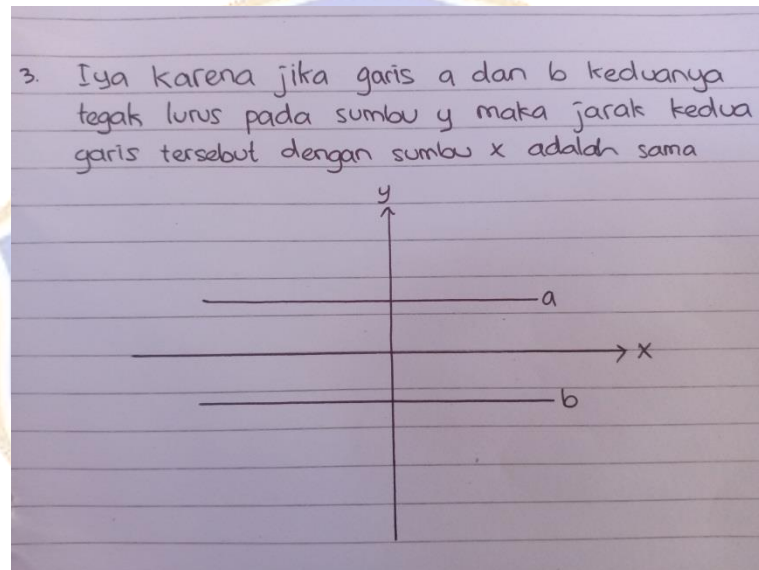 3. Iya karena jika garis a dan b keduanya
tegak lurus pada sumbu y maka jarak kedua
garis tersebut dengan sumbu x adalah sama
y
a
x
b